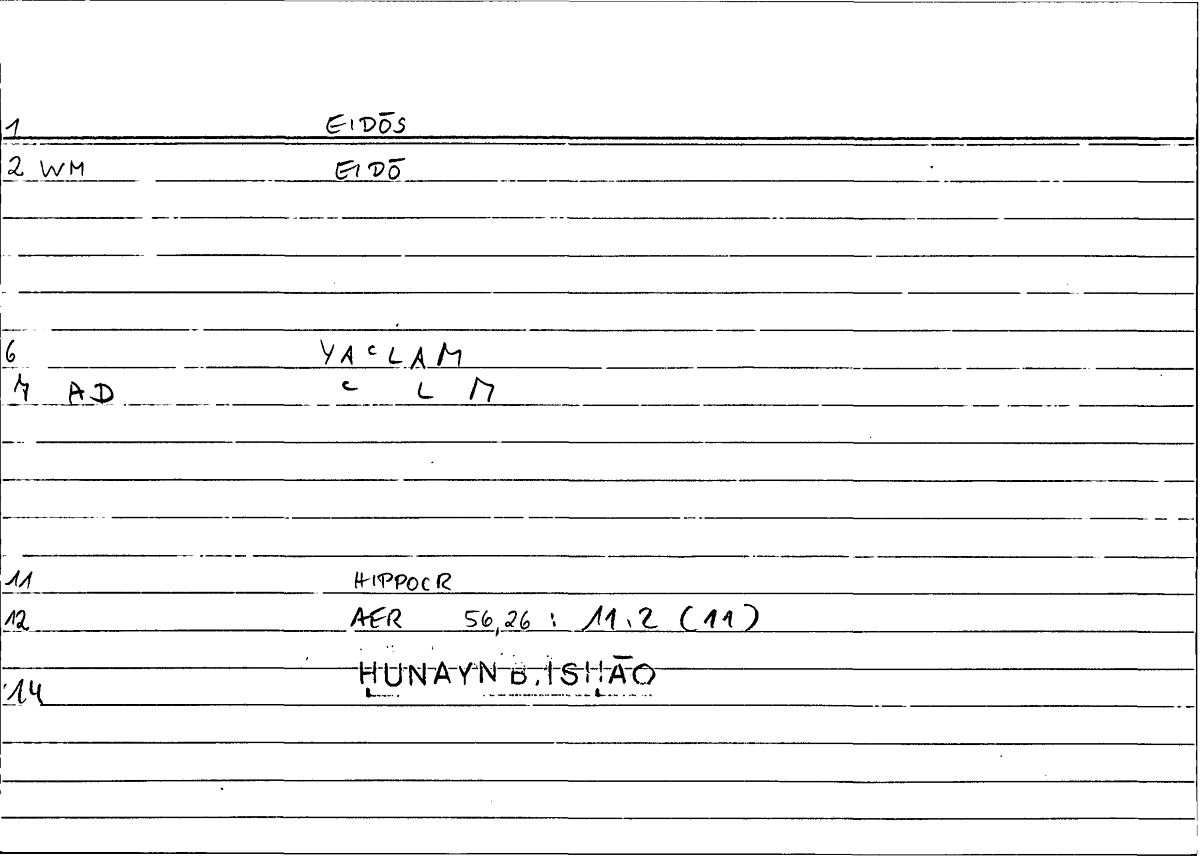 1 EIDŌS
2 WM EIDŌ
6 YAᶜLAM
7 AD ᶜ L M
11 HIPPOCR
12 AER 56,26 : 11.2 (11)
ḤUNAYN B. ISḤĀQ
14